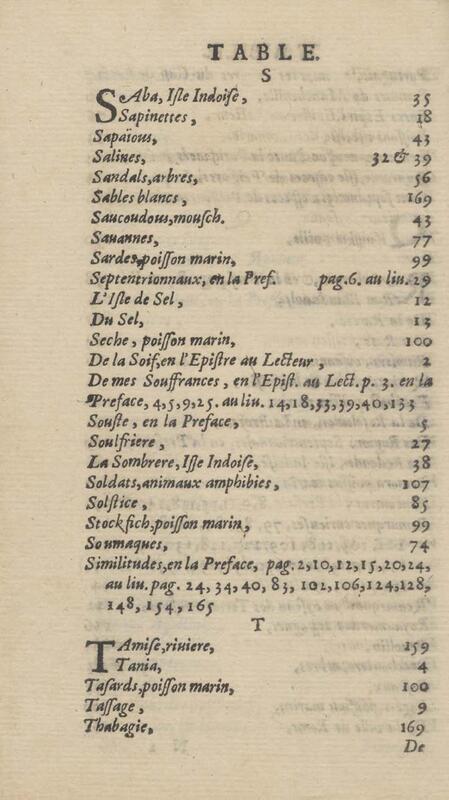 TABLE.
S
SAba, Isle Indoise, 35
Sapinettes, 18
Sapaïous, 43
Salines, 32 & 39
Sandals, arbres, 56
Sables blancs, 169
Saucoudous, mousch. 43
Sauannes, 77
Sardes, poisson marin, 99
Septentrionnaux, en la Pref. pag.6. au liu. 29
L'Isle de Sel, 12
Du Sel, 13
Seche, poisson marin, 100
De la Soif, en l'Epistre au Lecteur, 2
De mes Souffrances, en l'Epist. au Lect. p. 3. en la
Preface, 4, 5, 9, 25. au liu. 14, 18, 33, 39, 40, 133
Souste, en la Preface, 5
Soulfriere, 27
La Sombrere, Isle Indoise, 38
Soldats, animaux amphibies, 107
Solstice, 85
Stockfich, poisson marin, 99
Soumaques, 74
Similitudes, en la Preface, pag. 2, 10, 12, 15, 20, 24,
au liu. pag. 24, 34, 40, 83, 102, 106, 124, 128,
148, 154, 165
T
TAmise, riviere, 159
Tania, 4
Tasards, poisson marin, 100
Tassage, 9
Thabagie, 169
De